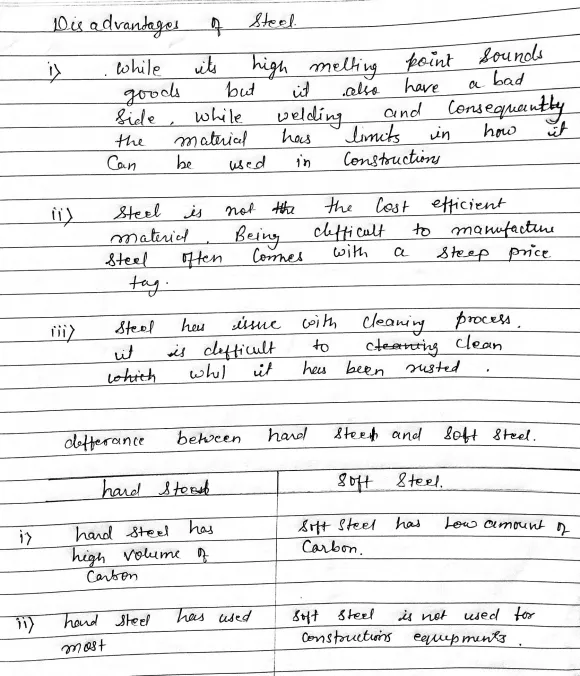 Disadvantages of Steel.
i) . While its high melting point sounds
goods but it also have a bad
side, while welding and Consequantly
the material has limits in how it
Can be used in Constructions
ii) Steel is not the the Cost efficient
material. Being difficult to manufacture
Steel often Comes with a steep price
tag.
iii) Steel has issue with cleaning process.
it is difficult to cleaning clean
which whl it has been rusted .
differance between hard Steel and Soft Steel.
hard Steel Soft Steel.
i) hard steel has Soft Steel has Low amount of
high volume of Carbon.
Carbon
ii) hard steel has used Soft Steel is not used for
most Constructions equipments .